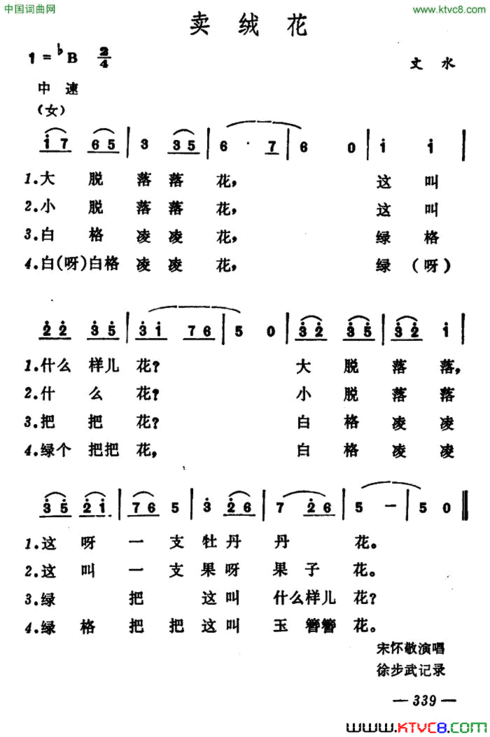 中国词曲网
www.ktvc8.com
卖绒花
1=♭B 2/4
文水
中速
(女)
i7 65 | 3 35 | 6· 7 | 6 0 | i i |
1.大脱落落花，这叫
2.小脱落落花，这叫
3.白格凌凌花，绿格
4.白(呀)白格凌凌花，绿(呀)
22 35 | 3i 76 | 5 0 | 32 35 | 32 i |
1.什么样儿花？大脱落落，
2.什么花？小脱落落，
3.把把花？白格凌凌
4.绿个把把花，白格凌凌
35 2i | 76 5 | 3 26 | 7 26 | 5 - | 5 0 ‖
1.这呀一支牡丹丹花。
2.这叫一支果呀果子花。
3.绿把这叫什么样儿花？
4.绿格把把这叫玉簪簪花。
宋怀敬演唱
徐步武记录
— 339 —
www.KTVC8.com